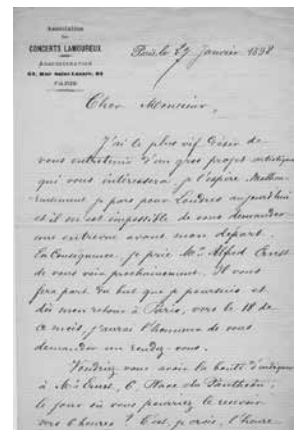 Association
des
CONCERTS LAMOUREUX
ADMINISTRATION
62, Rue Saint-Lazare, 62
PARIS
Paris, le 27 Janvier 1898
Cher Monsieur,
J'ai le plus vif désir de
vous entretenir d'un gros projet artistique
qui vous intéressera, je l'espère. Malheu-
reusement je pars pour Londres aujourd'hui
et il m'est impossible de vous demander
une entrevue avant mon départ.
En conséquence, je prie Mr. Alfred Ernst
de vous voir prochainement. Il vous
fera part du but que je poursuis et
dès mon retour à Paris, vers le 18 de
ce mois, j'aurai l'honneur de vous
demander un rendez-vous.
Voudriez-vous avoir la bonté d'indiquer
à Mr. Ernst, 6, Place du Panthéon,
le jour où vous pourriez le recevoir
vers heures ? C'est, je crois, l'heure